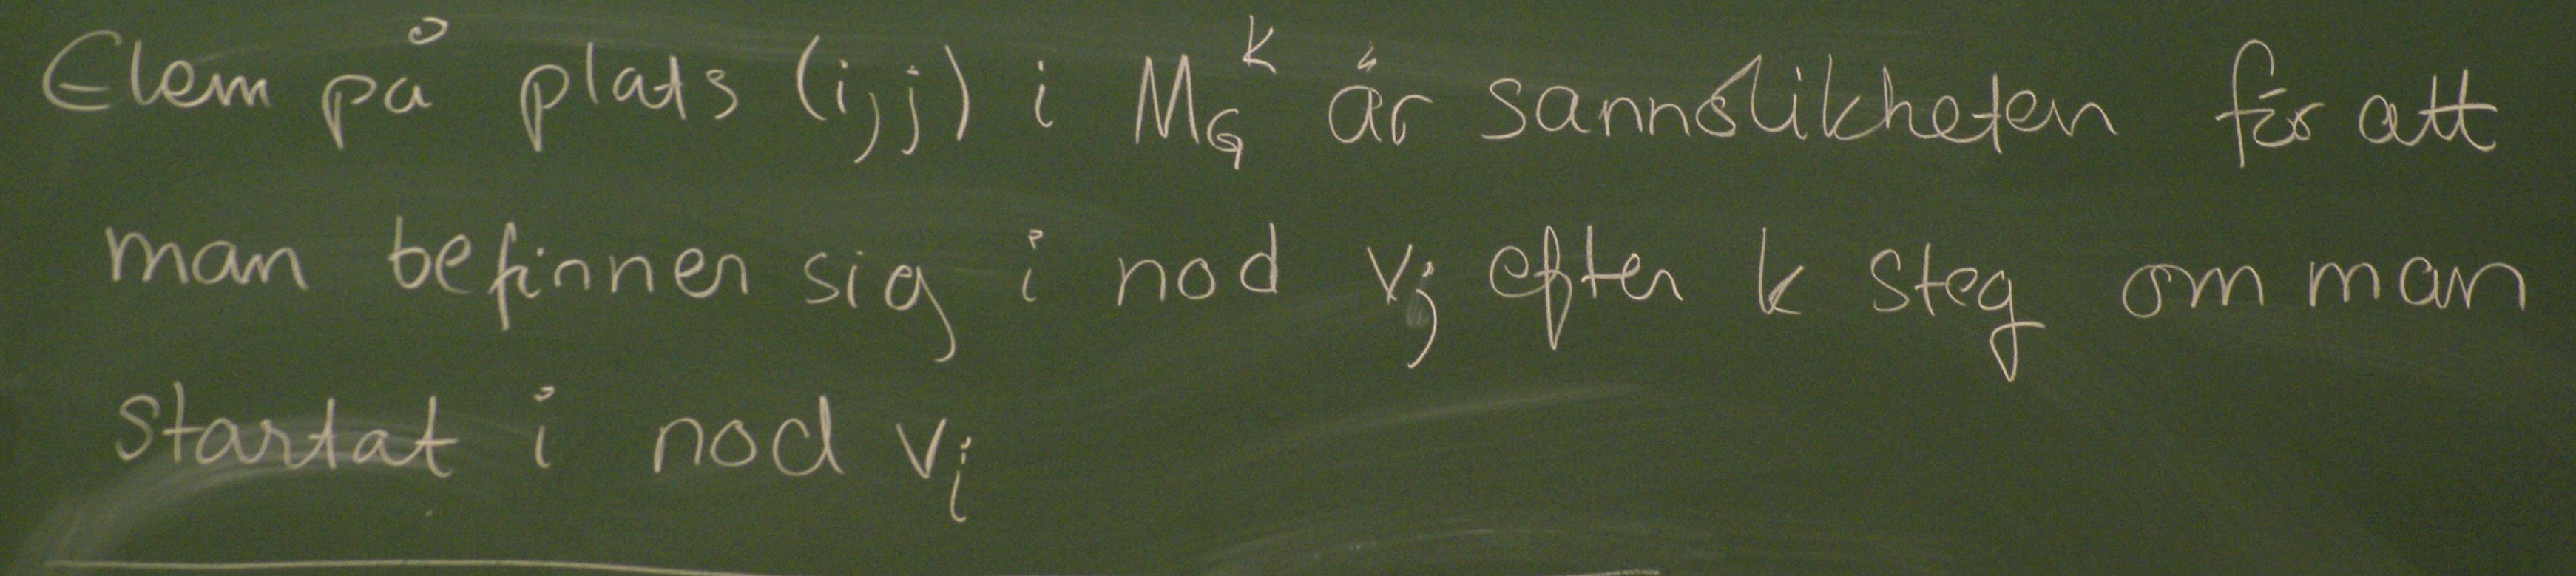 Elem på plats (i,j) i M_G^k är sannolikheten för att
man befinner sig i nod v_j efter k steg om man
startat i nod v_i